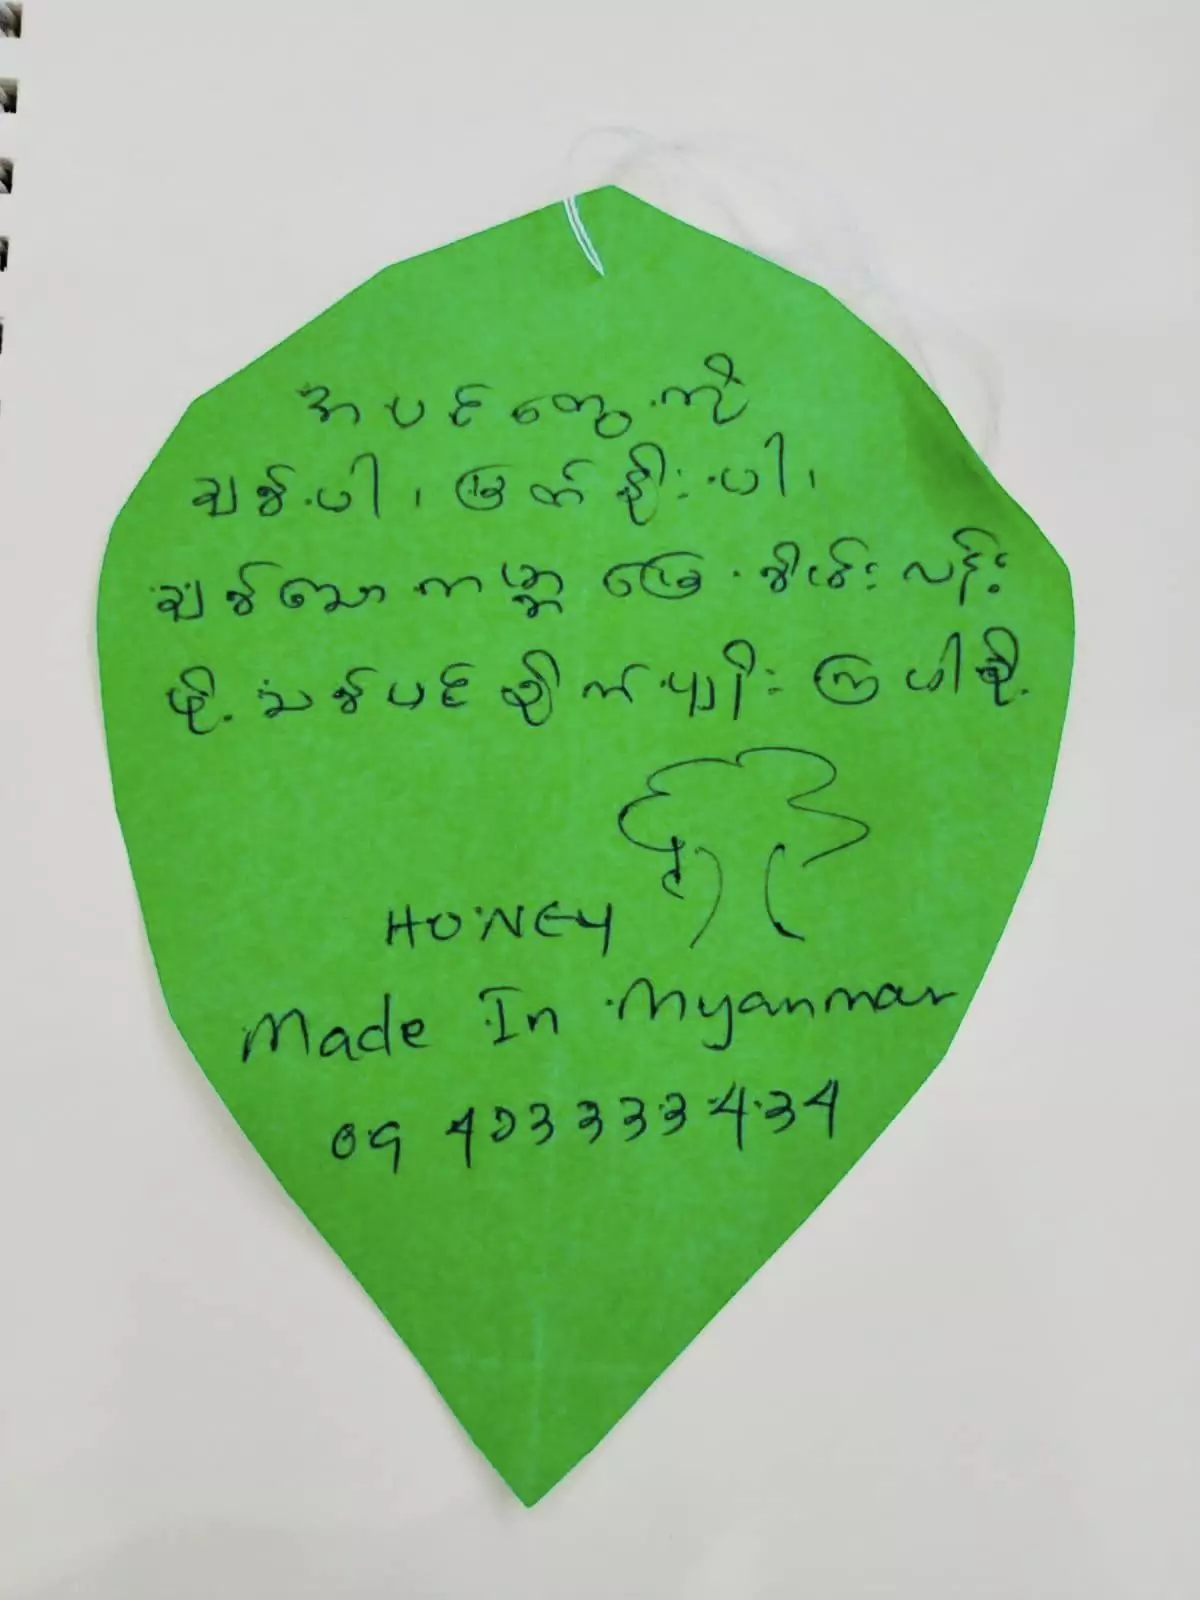 အပင်တွေကို
ချစ်ပါ၊ မြတ်နိုးပါ၊
ချစ်သောကမ္ဘာမြေ စိမ်းလန်း
ဖို့ သစ်ပင်စိုက်ပျိုးကြပါစို့
HONEY
Made In Myanmar
09 403333434